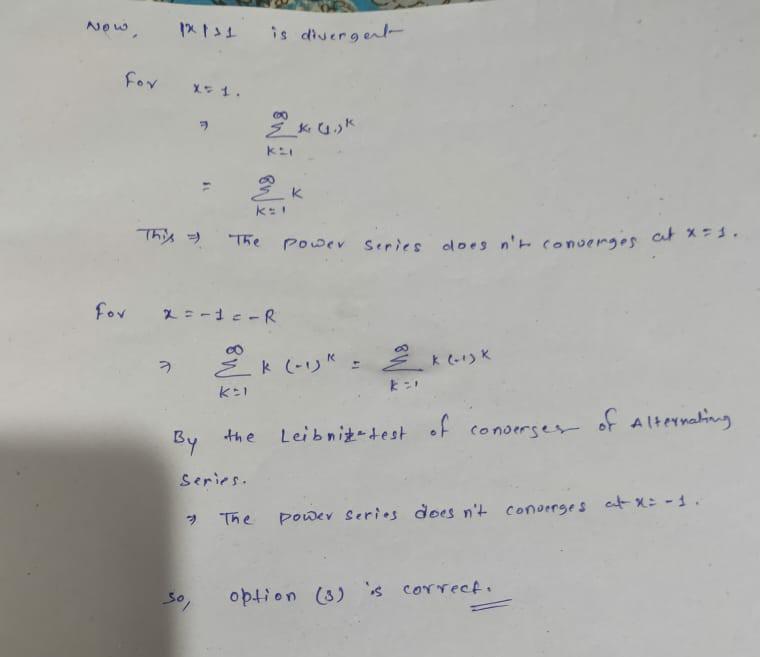 Now, |x|>1 is divergent
For x=1.
⇒ ∞ Σ k=1 k (1)^k
= ∞ Σ k=1 k
This ⇒ The power series does n't converges at x=1.
For x=-1=-R
⇒ ∞ Σ k=1 k (-1)^k = ∞ Σ k=1 k (-1)^k
By the Leibnitz test of converges of Alternating
Series.
⇒ The power series does n't converges at x=-1.
So, option (3) is correct.